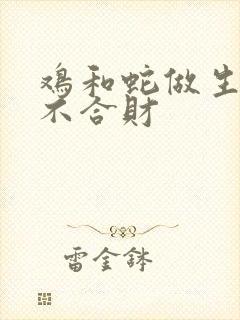 鸡和蛇做生
不合財
雷金鉢